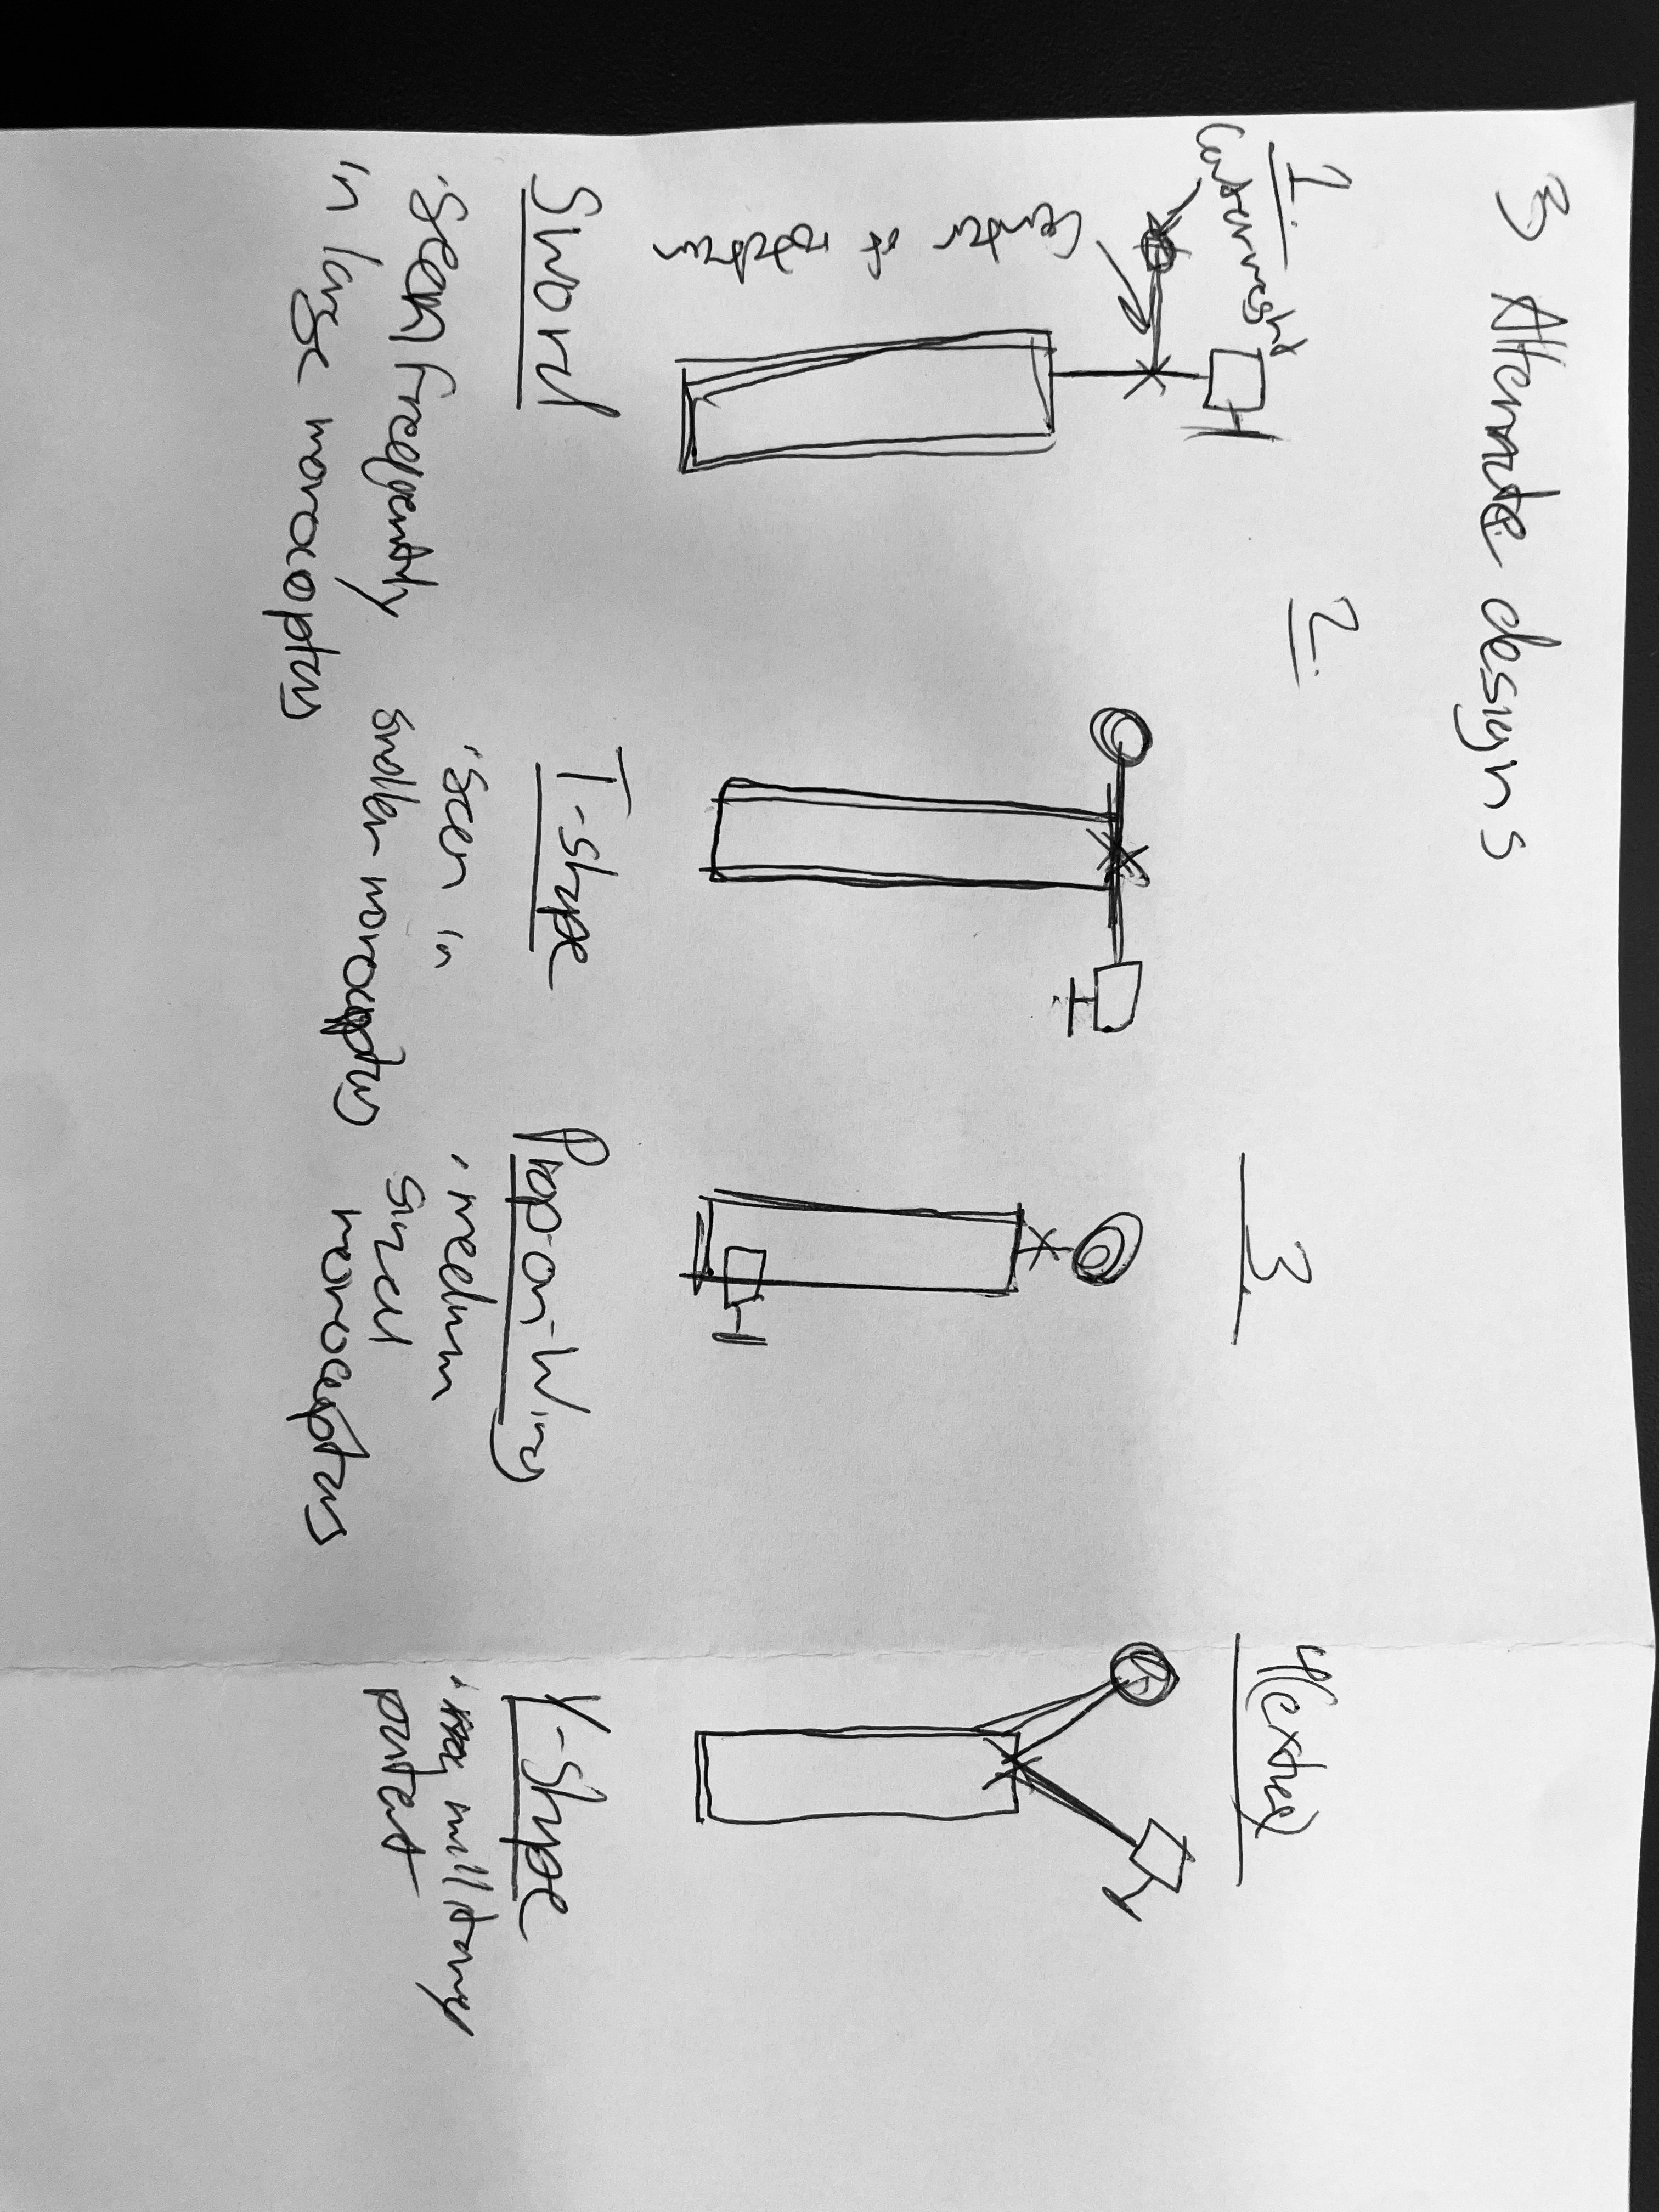 3 Alternate designs
1.
Counterweight
Center of rotation
Sword
· Seen frequently
in large monocopters
2.
T-shape
· Seen in
smaller monocopters
3.
Prop-on-Wing
· medium
sized
monocopters
4(extra)
Y-shape
· military
patent